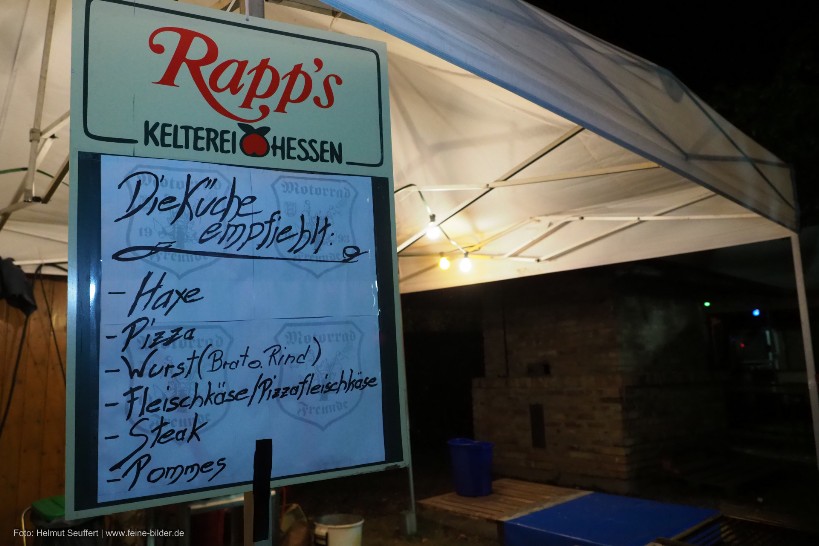 Rapp's
KELTEREI HESSEN
Die Küche
empfiehlt:
- Haxe
- Pizza
- Wurst (Brat o. Rind)
- Fleischkäse/Pizzafleischkäse
- Steak
- Pommes
Motorrad
Motorrad
Freunde
Foto: Helmut Seuffert | www.feine-bilder.de